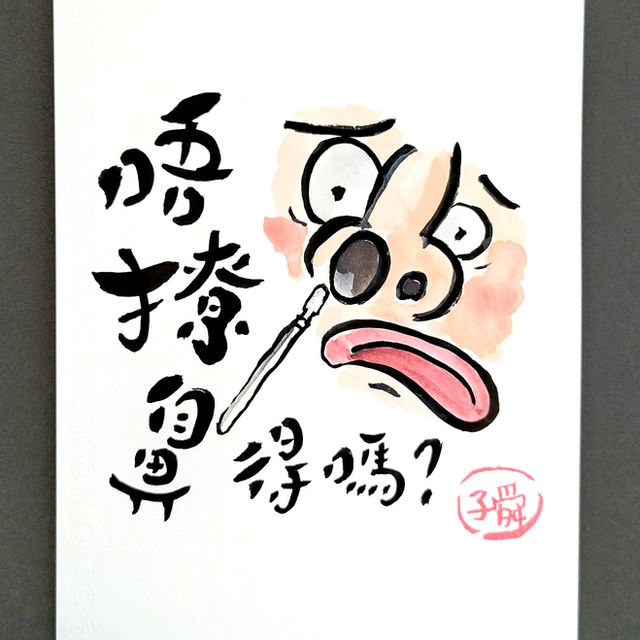 唔
撩
鼻
得嗎?
子舜